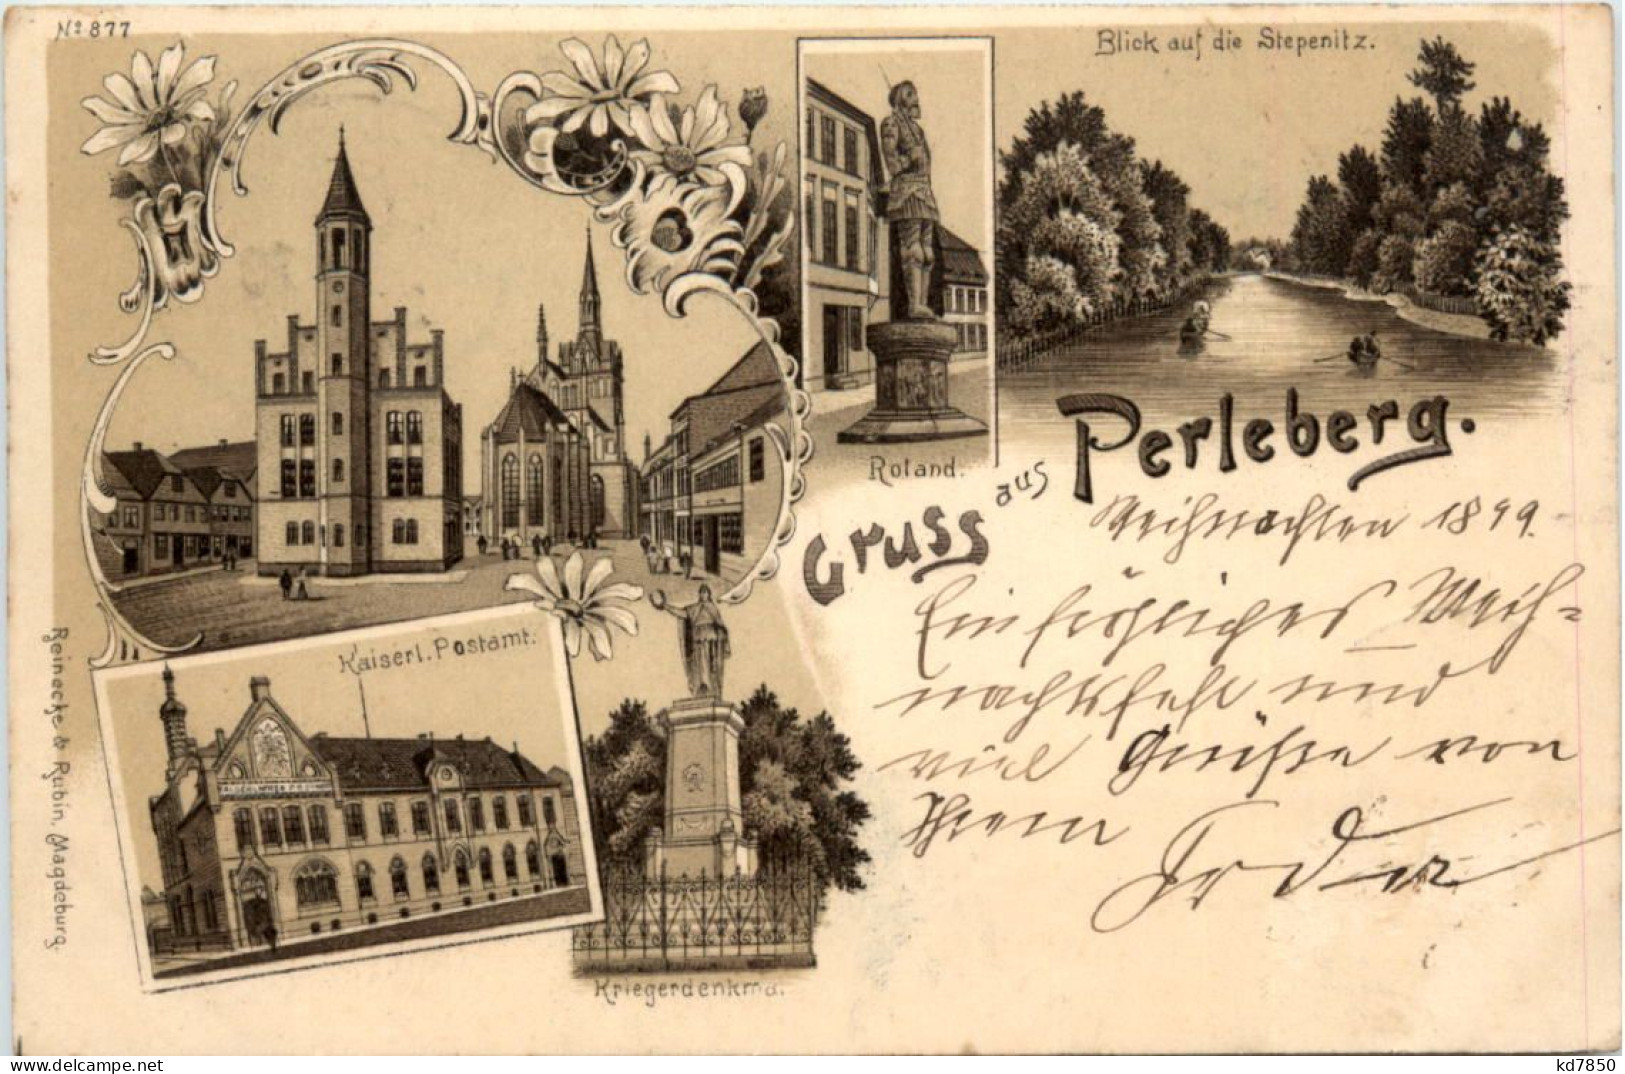 No 877
Blick auf die Stepenitz.
Roland.
Gruss aus Perleberg.
Weihnachten 1899.
Ein fröhliches Weih=
nachtsfest und
viel Grüße von
Ihrem
Kaiserl. Postamt.
Kriegerdenkmal.
Reinecke & Rubin, Magdeburg.
kd7850